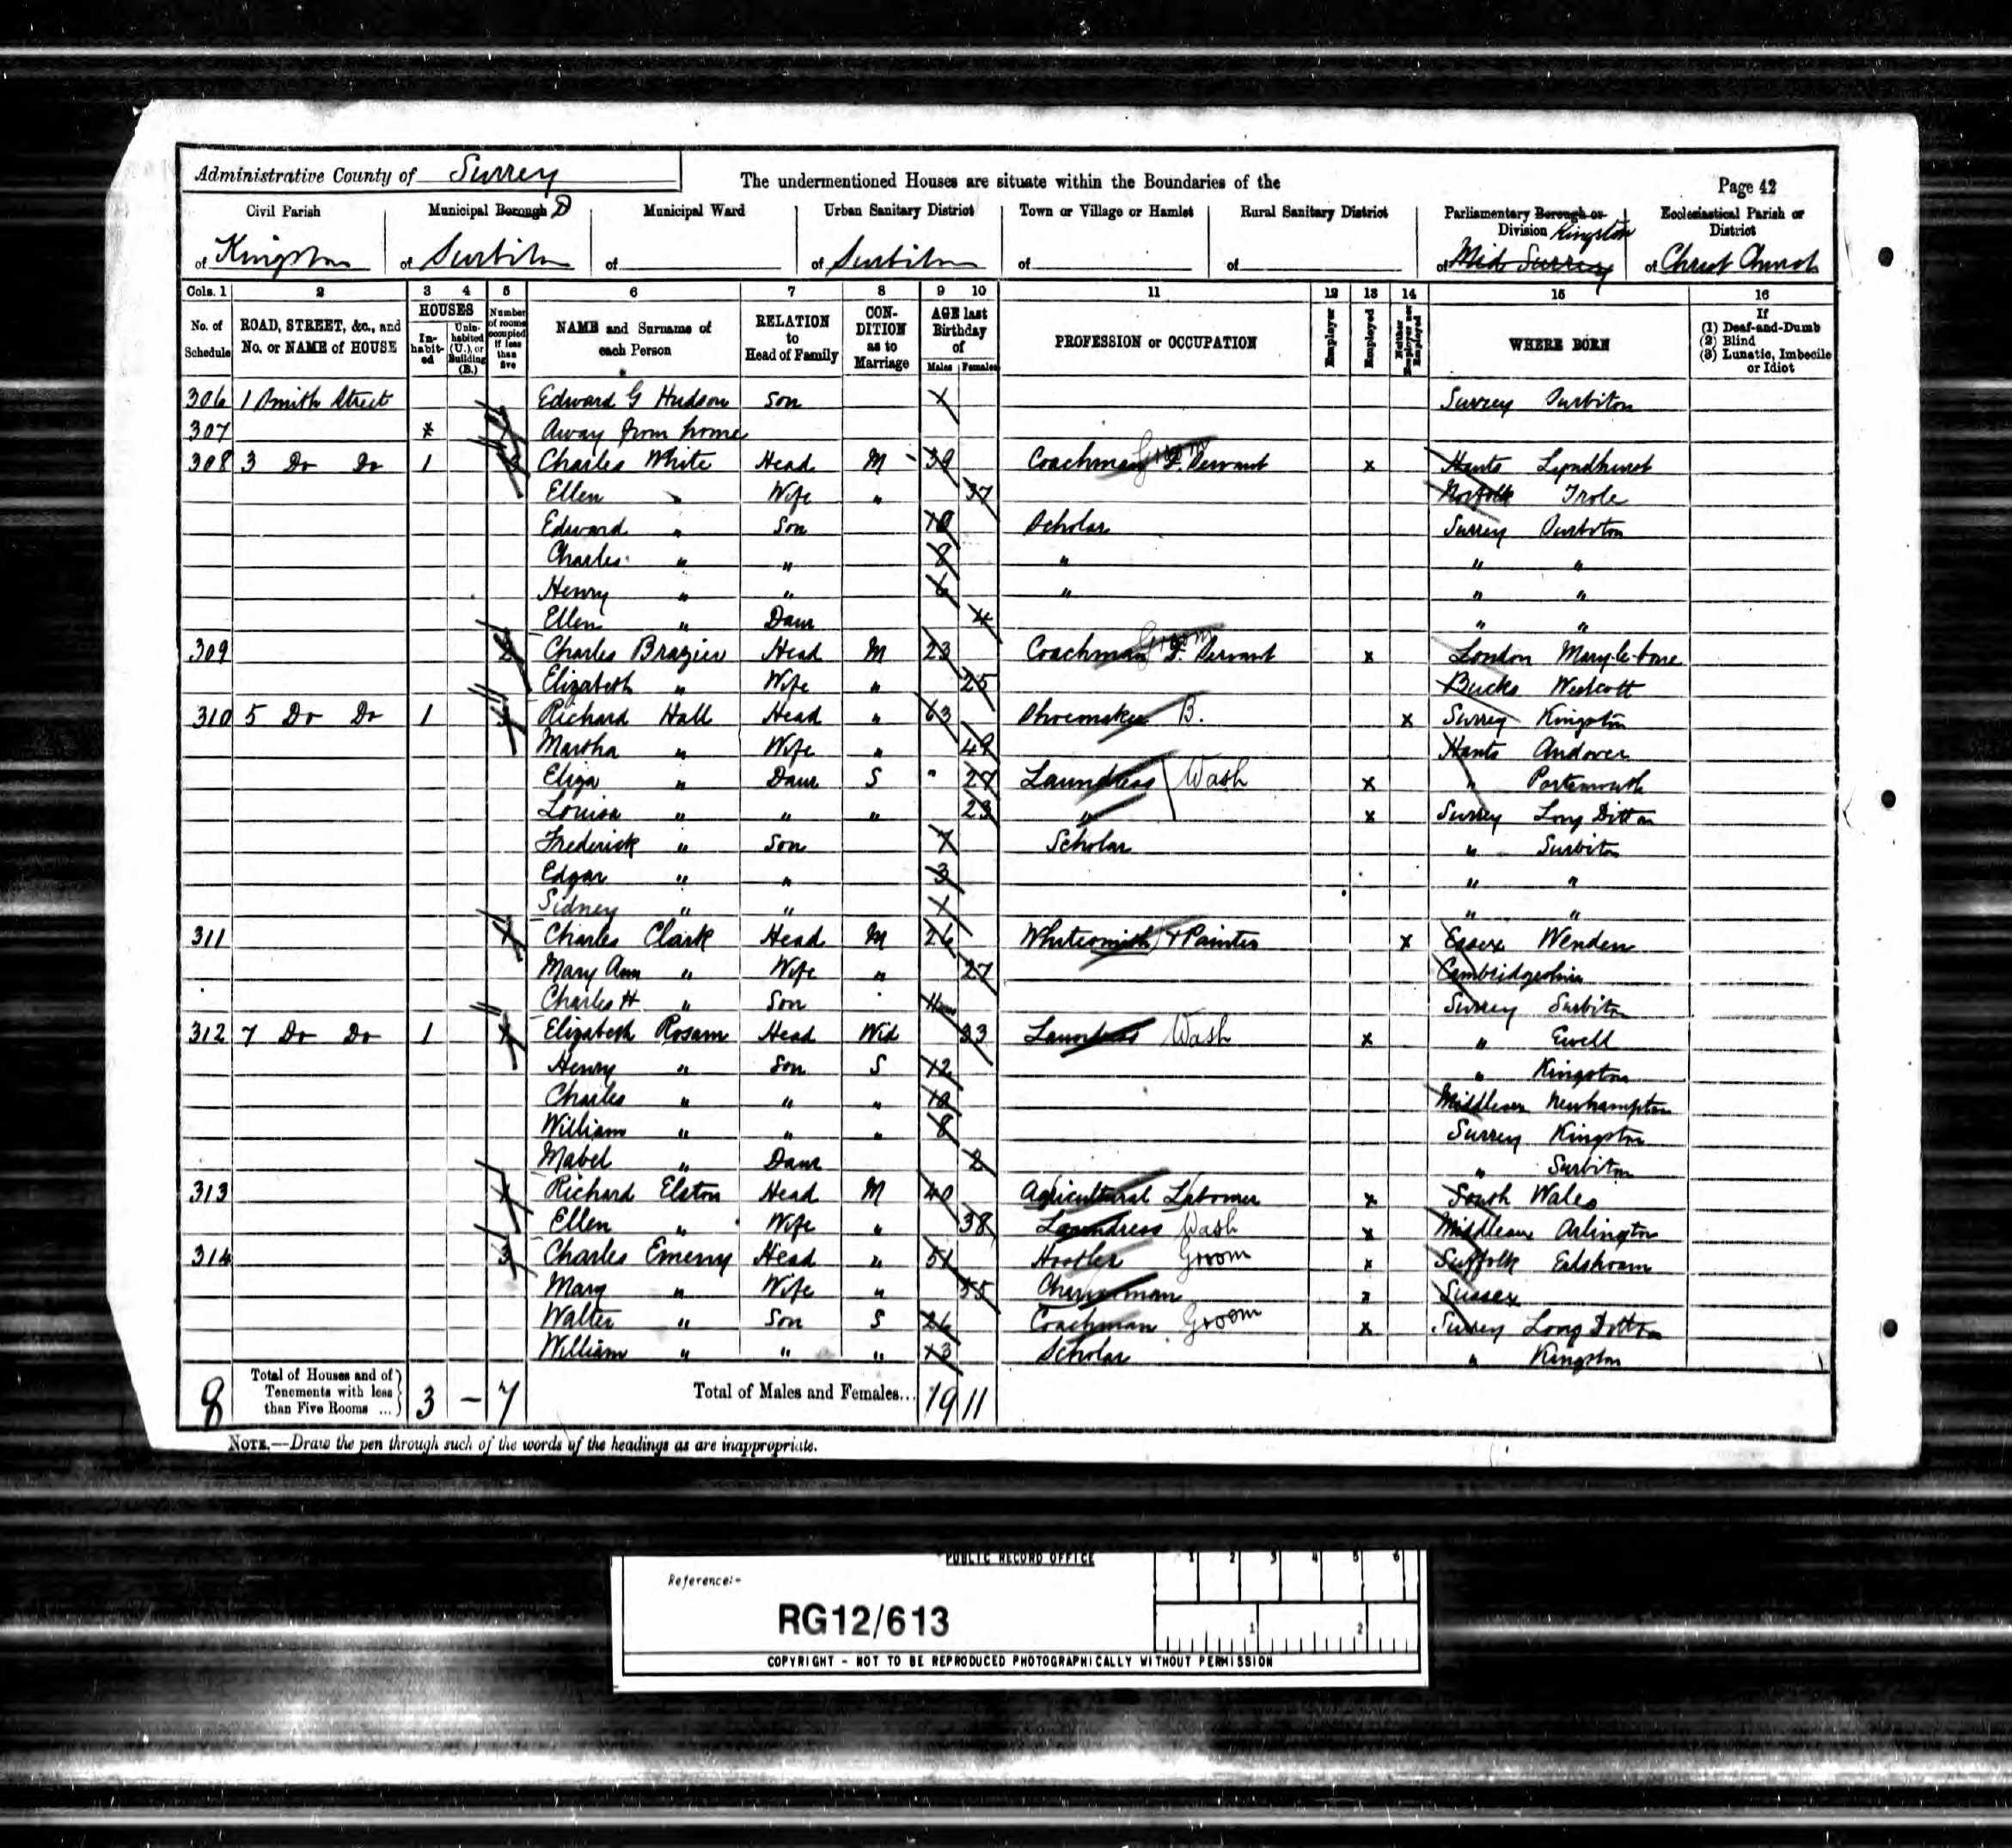 Administrative County of Surrey
The undermentioned Houses are situate within the Boundaries of the
Page 42
Civil Parish
Municipal Borough
Municipal Ward
Urban Sanitary District
Town or Village or Hamlet
Rural Sanitary District
Parliamentary Borough or Division Kingston
Ecclesiastical Parish or District
of Kingston
of Surbiton
of
of Surbiton
of
of
of Mid Surrey
of Christ Church
Cols. 1 2 3 4 5 6 7 8 9 10 11 12 13 14 15 16
No. of Schedule
ROAD, STREET, &c., and No. or NAME of HOUSE
HOUSES
In-habit-ed
Unin-habited (U.), or Building (B.)
Number of rooms occupied if less than five
NAME and Surname of each Person
RELATION to Head of Family
CON-DITION as to Marriage
AGE last Birthday of
Males Females
PROFESSION or OCCUPATION
Employer
Employed
Neither Employer nor Employed
WHERE BORN
If
(1) Deaf-and-Dumb
(2) Blind
(3) Lunatic, Imbecile or Idiot
306 1 Smith Street Edward G Hudson Son 1 Surrey Surbiton
307 x Away from home
308 3 Do Do 1 Charles White Head M 39 Coachman Groom D. Servant x Hants Lyndhurst
Ellen " Wife " 37 Norfolk
Edward " Son 10 Scholar Surrey Surbiton
Charles " " 8 " " "
Henry " " 6 " " "
Ellen " Daur 4 " "
309 2 Charles Brazier Head M 23 Coachman Groom D. Servant x London Mary-le-bone
Elizabeth " Wife " 25 Bucks Westcott
310 5 Do Do 1 Richard Hall Head " 63 Shoemaker B. x Surrey Kingston
Martha " Wife " 49 Hants Andover
Eliza " Daur S " 27 Laundress Wash x " Portsmouth
Louisa " " " 23 " x Surrey Long Ditton
Frederick " Son 7 Scholar " Surbiton
Edgar " " 3 " "
Sidney " " 1 " "
311 Charles Clark Head M 26 Whitesmith & Painter x Essex Wenden
Mary Ann " Wife " 27 Cambridgeshire
Charles H " Son Surrey Surbiton
312 7 Do Do 1 Elizabeth Rosam Head Wid 33 Laundress Wash x " Ewell
Henry " Son S 12 " Kingston
Charles " " " 10 Middlesex Newhampton
William " " " 8 Surrey Kingston
Mabel " Daur 2 " Surbiton
313 Richard Elston Head M 40 Agricultural Labourer x South Wales
Ellen " Wife " 38 Laundress Wash x Middlesex Arlington
314 3 Charles Emery Head " 51 Hostler Groom x Suffolk
Mary " Wife " 55 Charwoman x Sussex
Walter " Son S 26 Coachman Groom x Surrey Long Ditton
William " " " 13 Scholar " Kingston
8
Total of Houses and of Tenements with less than Five Rooms ...
3 – 7
Total of Males and Females...
19 11
NOTE.—Draw the pen through such of the words of the headings as are inappropriate.
PUBLIC RECORD OFFICE
1 2 3 4 5 6
Reference:-
RG12/613
1 2
COPYRIGHT - NOT TO BE REPRODUCED PHOTOGRAPHICALLY WITHOUT PERMISSION